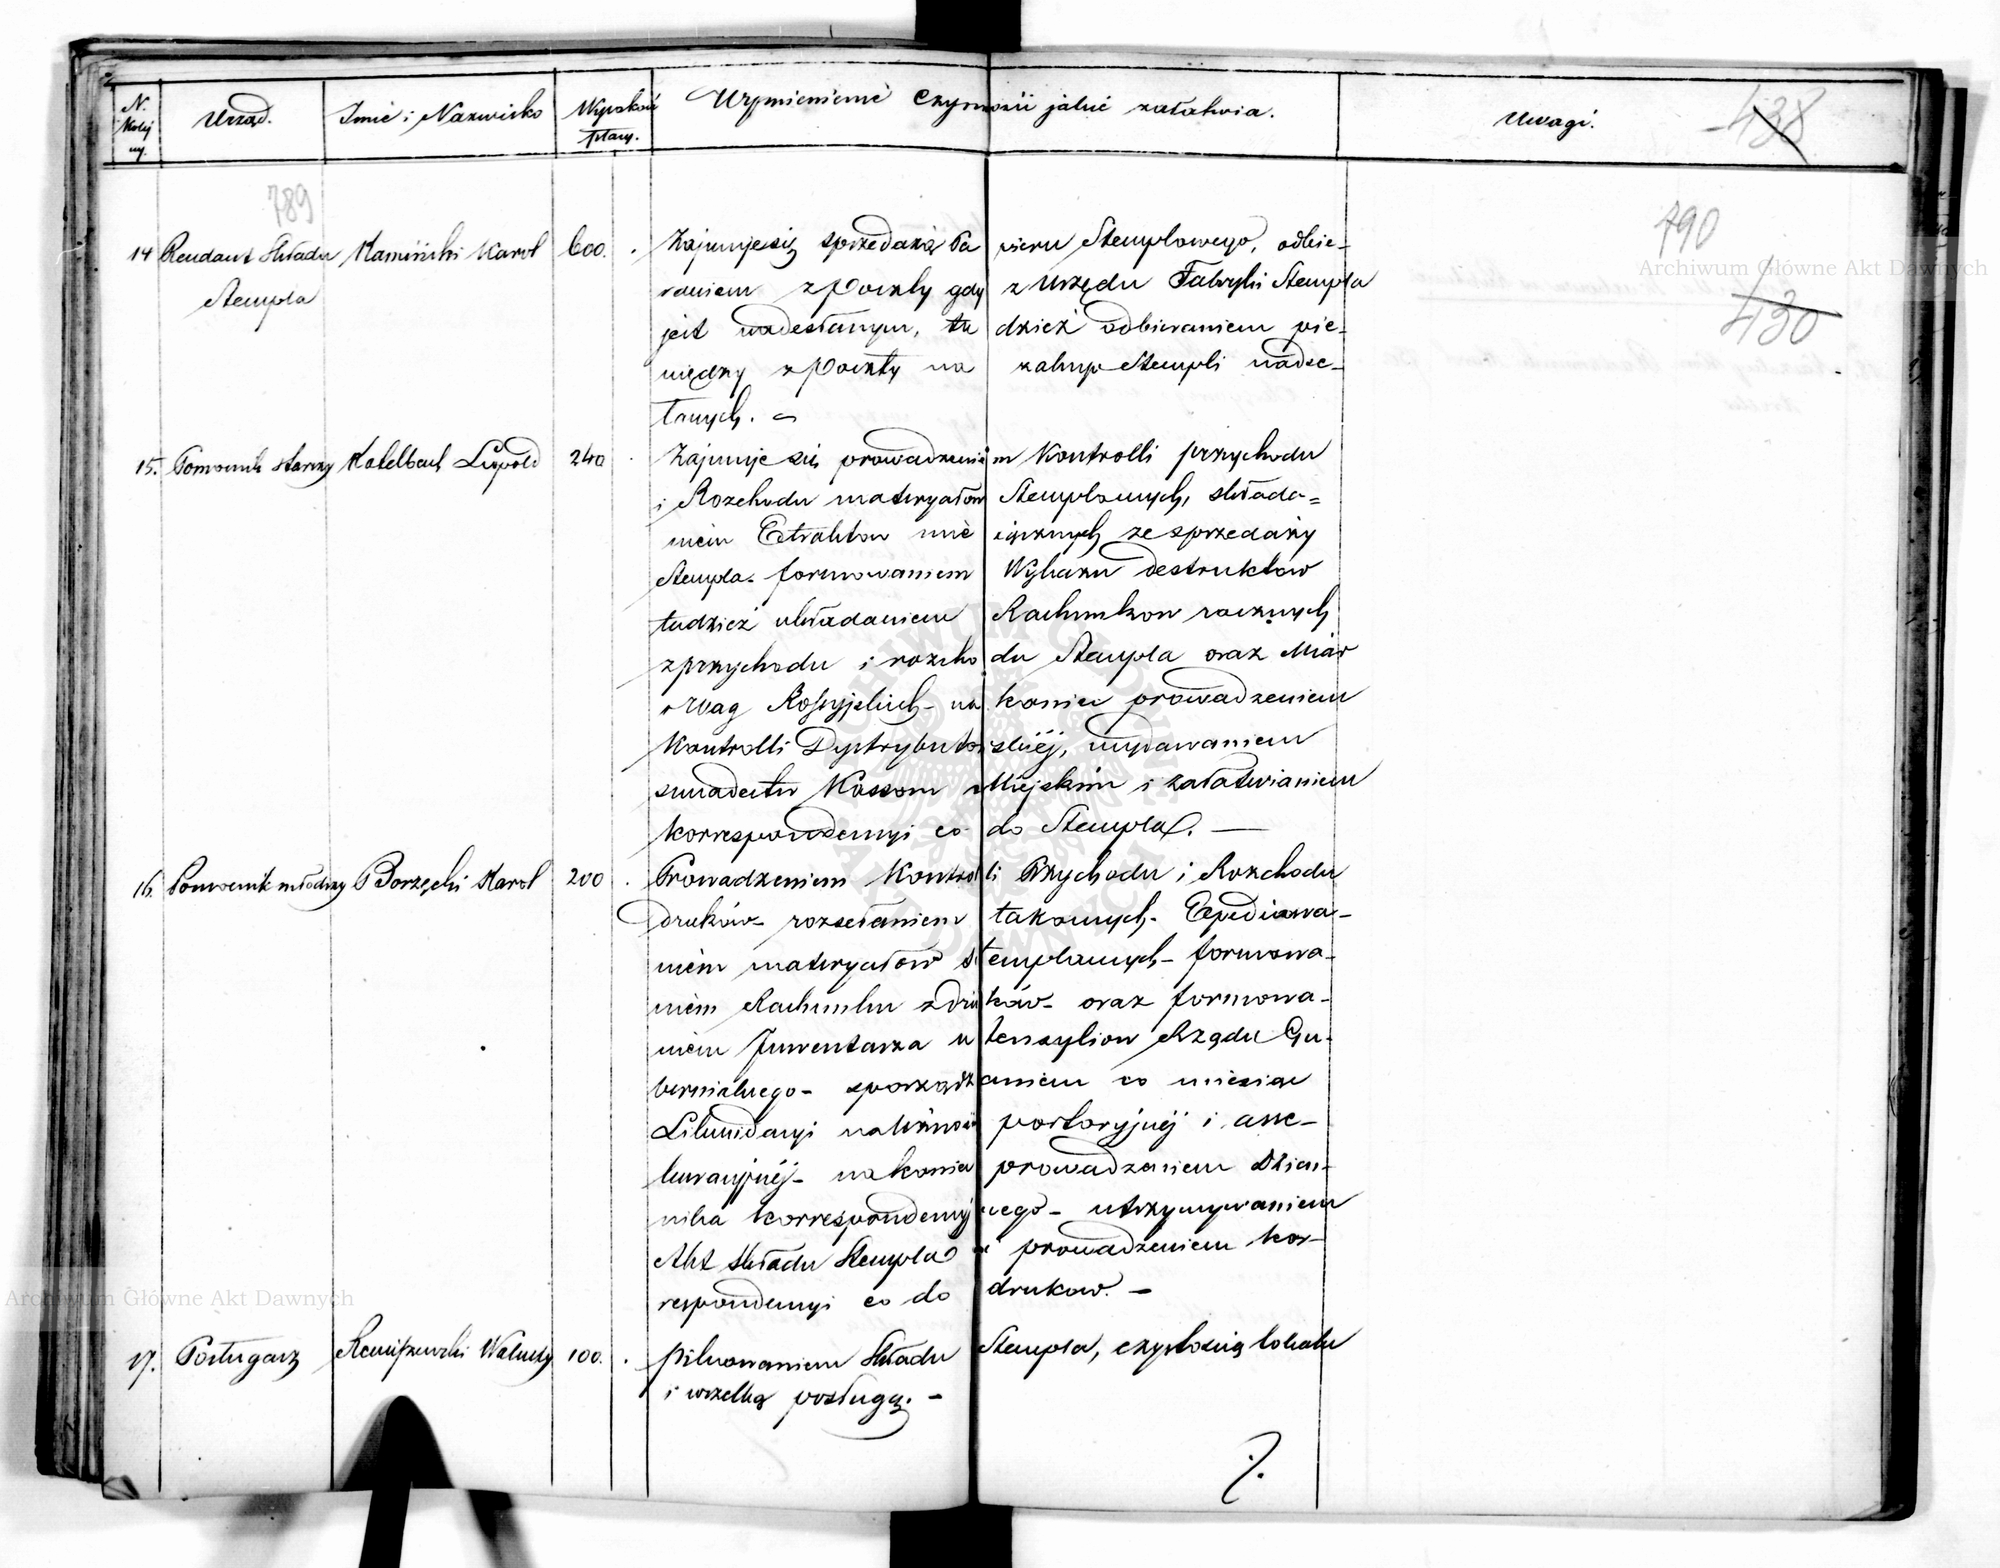 N. Kolejny.
Urząd.
Imie i Nazwisko
Wysokość płacy.
Wymienienie Czynności jakie załatwia.
Uwagi.
438
789
790
430
14 Rendant Składu Kamiński Karol 600. Zajmuje się sprzedażą Papieru Stemplowego, odbie-
Stempla raniem z Poczty gdy z Urzędu Fabryki Stempla
jest nadesłanym, tudzież odbieraniem pie-
niędzy z Poczty na zakup Stempli nadse-
łanych.
15. Pomocnik starszy Katelbach Leopold 240 Zajmuje się prowadzeniem Kontrolli przychodu
i Rozchodu materyałow Stemplowych, składa=
niem Extraktow miesięcznych ze sprzedaży
Stempla. formowaniem Wykazu destruktow
tudzież układaniem Rachunkow rocznych
z przychodu i rozchodu Stempla oraz Miar
i Wag Rossyjskich - nakoniec prowadzeniem
Kontrolli Dystrybutorskiéj, wydawaniem
Kassom Miejskim i załatwianiem
korrespondencyi co do Stempla. —
16. Pomocnik młodszy Borzęcki Karol 200 Prowadzeniem Kontrolli Przychodu i Rozchodu
druków - rozsełaniem takowych - Expediowa-
niem materyałow stemplowych - formowa-
niem Rachunku z druków - oraz formowa-
niem Inwentarza utensyliow Rządu Gu-
bernialnego - sporządzaniem co miesiąc
Likwidacyi portoryjnéj i asse-
kuracyjnéj - nakoniec prowadzeniem Dzien-
nika korrespondencyjnego - utrzymywaniem
Akt Składu Stempla i prowadzeniem kor-
respondencyi co do drukow. —
17. Posługacz Walenty 100. pilnowaniem Składu Stempla, czystością lokalu
i wszelką posługą. -
Archiwum Główne Akt Dawnych
Archiwum Główne Akt Dawnych
ARCHIWUM GŁÓWNE AKT DAWNYCH